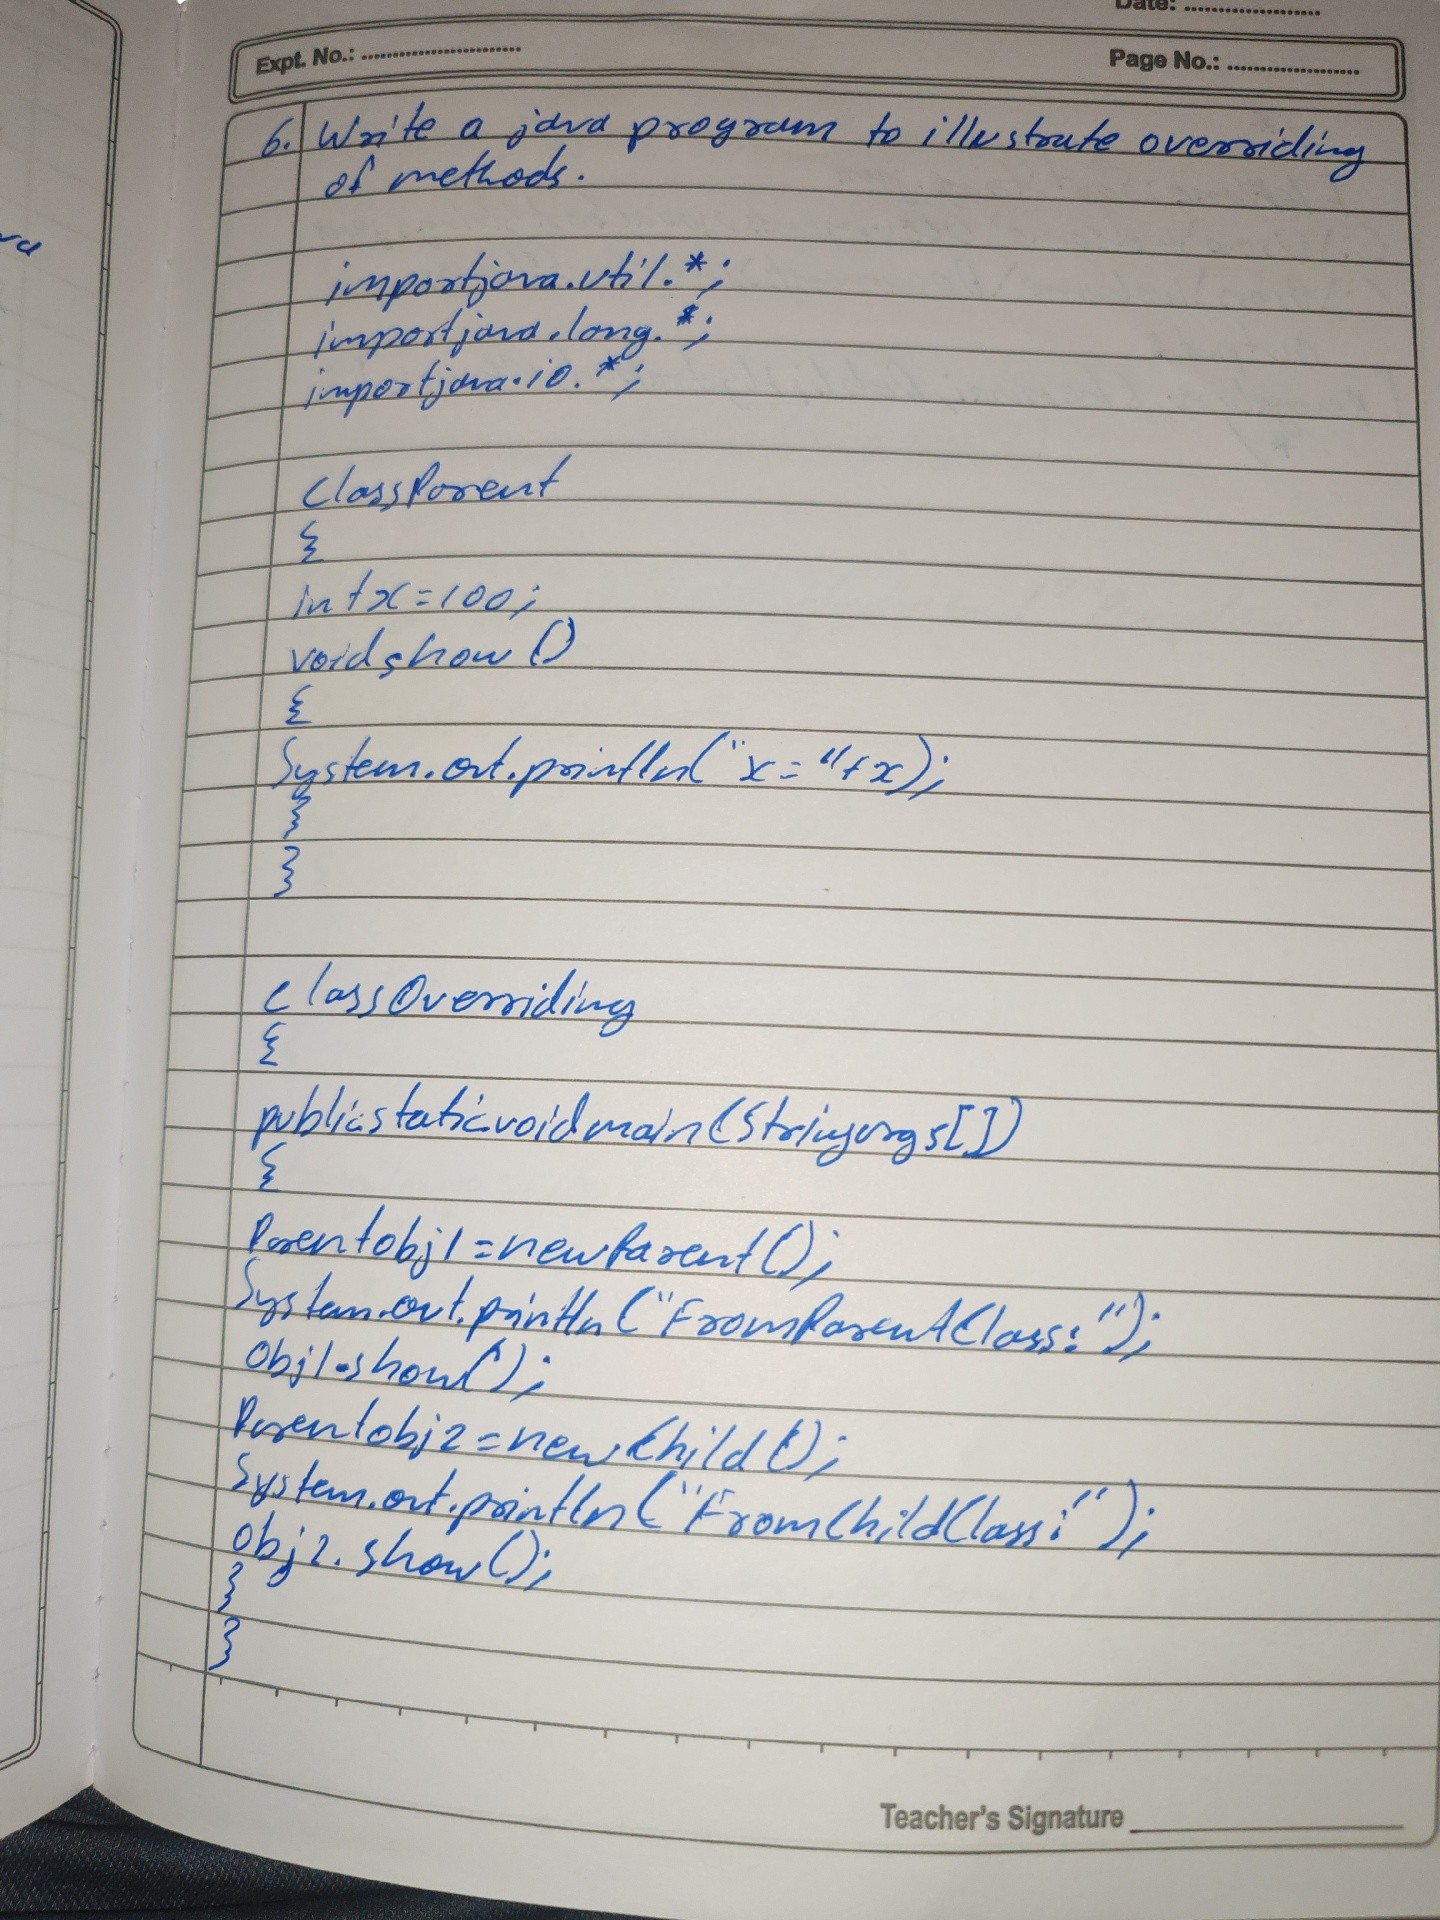 Date: ....................
Expt. No.: .........................
Page No.: ....................
6. Write a java program to illustrate overriding
of methods.
importjava.util.*;
importjava.long.*;
importjava.io.*;
classParent
{
intx=100;
voidshow()
{
System.out.println("x="+x);
}
}
classOverriding
{
publicstaticvoidmain(Stringargs[])
{
Parentobj1=newParent();
System.out.println("FromParentClass:");
Obj1.show();
Parentobj2=newChild();
System.out.println("FromChildClass:");
obj2.show();
}
}
Teacher's Signature